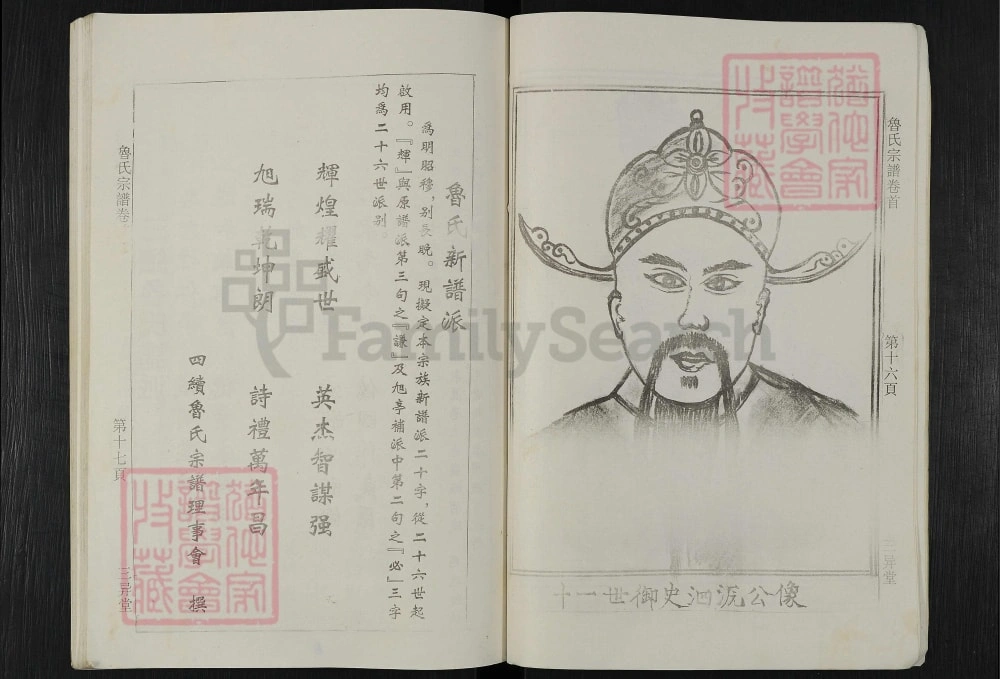 魯氏宗譜卷首
第十六頁
三异堂
十一世御史泗派公像
魯氏新譜派
為明昭穆，别長晚。現擬定本宗族新譜派二十字，從二十六世起
啟用。『輝』與原譜派第三句之『謙』及旭亭補派中第二句之『必』三字
均為二十六世派别。
輝煌耀盛世 英杰智謀强
旭瑞乾坤朗 詩禮萬年昌
四續魯氏宗譜理事會 撰
魯氏宗譜卷
第十七頁
三异堂
FamilySearch